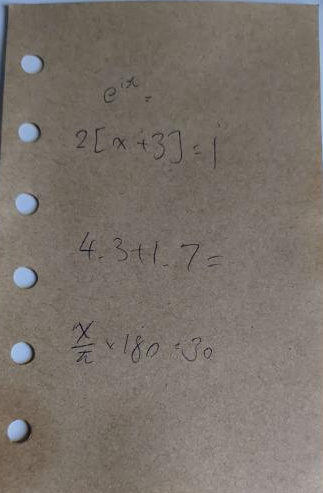 e^{ix} =
2[x+3]=1
4.3+1.7=
x/π × 180 = 30